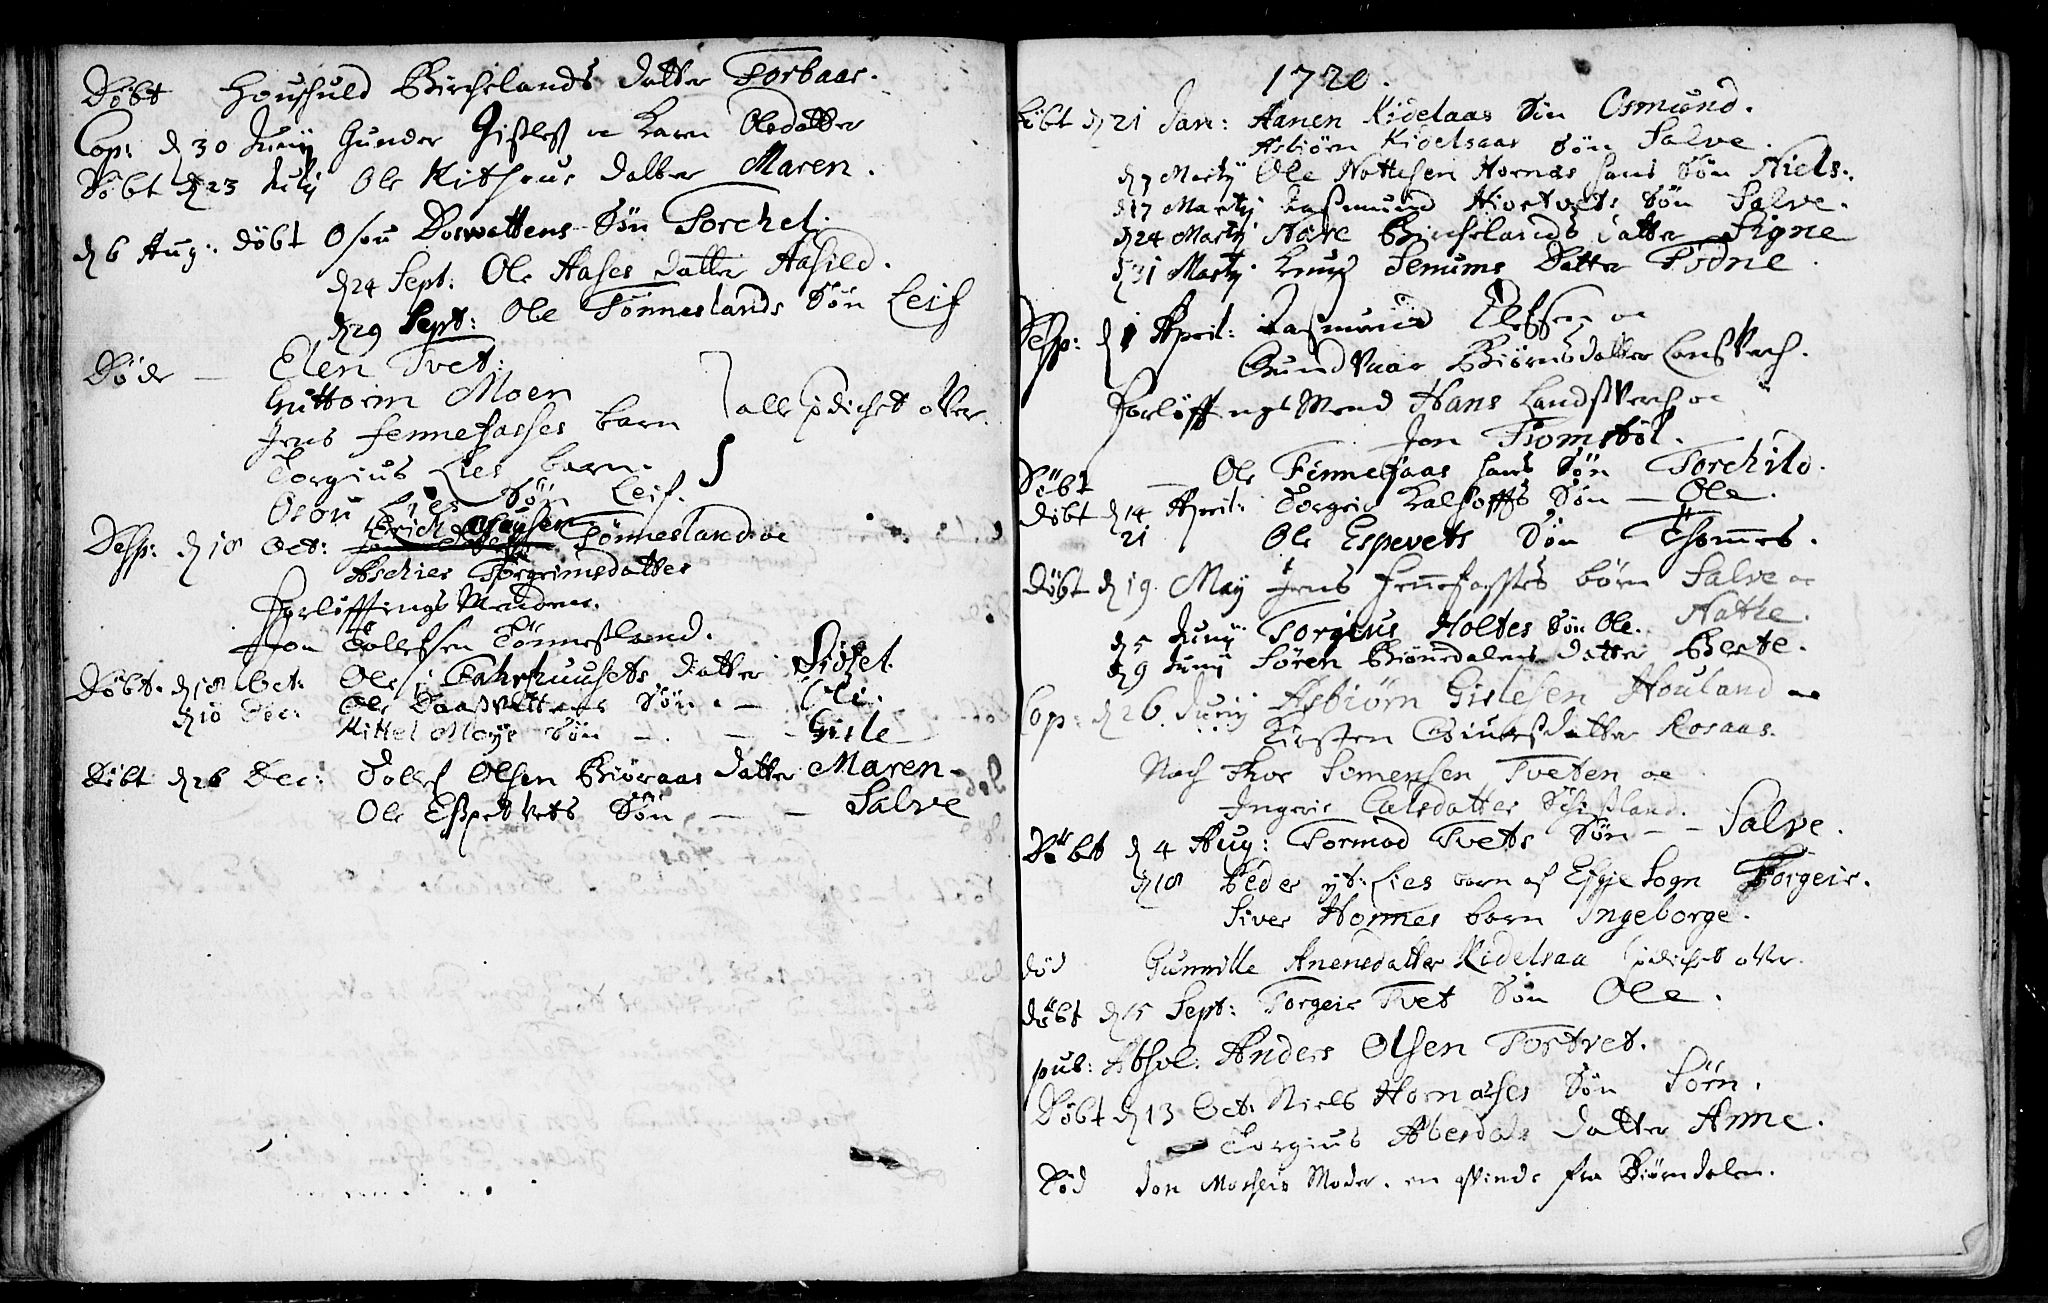 Døbt Houshuld Birchelands datter Torbaar.
Cop: d 30 Junij Gunder Gisles oc Karn Olsdatter
Døbt d 23 July Ole Kithous datter Maren.
d 6 Aug: døbt Osou Doswattens Søn Torchel.
d 24 Sept: Ole Aases datter Aasild.
d 29 Sept: Ole Tønneslands Søn Leif
Døde — Elen Tvet:
Guttorm Moen
Jens Fennefosses barn alle prædichet over.
Torgius Lies barn.
Osou Lies Søn Leif.
Desp: d 18 Oct: Erich Tønnesland oc
Aschier Torgrimsdatter
Forløffnings Mendene.
Jon Tollefsen Tønnesland.
Døbt. d 18 Oct: Ole i Fahrhuusets datter Sidsel.
d 10 Dec: Ole Daasvattens Søn. — Oli.
Kittel Moys Søn — . — Gisle
Døbt d 26 Dec: Tollef Olsen Biøraas datter Maren —
Ole Espetvets Søn — — Salve
1720.
Døbt d 21 Jan: Aanen Kidelaas Søn Osmund.
Asbiørn Kidelsaas Søn Salve.
d 7 Martij Ole Nottesen Hornes hans Søn Niels.
d 17 Martij Rasmund Hiortvets Søn Salve.
d 24 Martij Aare Birchelands datter Signe
d 31 Martij Knud Senums Datter Todne.
Desp: d 1 April: Rasmund Olefsen oc
Gundvaar Biørnsdatter Landsverch.
Forløffnings Mend Hans Landsverch oc
Jon Tromstøl.
Døbt — Ole Fennefaas hans Søn Torchild.
Døbt d 14 April: Torgrim Kalhofs Søn — Ole.
21 Ole Espevets Søn Thommes.
Døbt d 19. May Jens Fennefosses børn Salve oc
Nathe.
d 5 Junij Torgius Holtes Søn Ole.
d 9 Junij Søren Biørndalens datter Berte.
Cop: d 26. Junij Asbiørn Gislesen Houland oc
Kirsten Siversdatter Rosaas.
Noch Thor Simensen Tveten oc
Ingerie Calsdatter
Døbt d 4 Aug: Tormod Tvets Søn — — Salve.
d 18 Peder yt: Lies barn af Efye Sogn Torgeir.
Siver Hornes barn Ingeborge.
død Gunnille Anensdatter Kidelsaa prædichet over.
døbt d 15 Sept: Torgeir Tvet Søn Ole.
pub: Absol: Anders Olsen Tortvet.
Døbt d 13 Oct. Niels Hornæses Søn Sørn.
Torgius Abesdals datter Anne.
Død Jon Mosheis Moder. en qvinde fra Biørndalen.